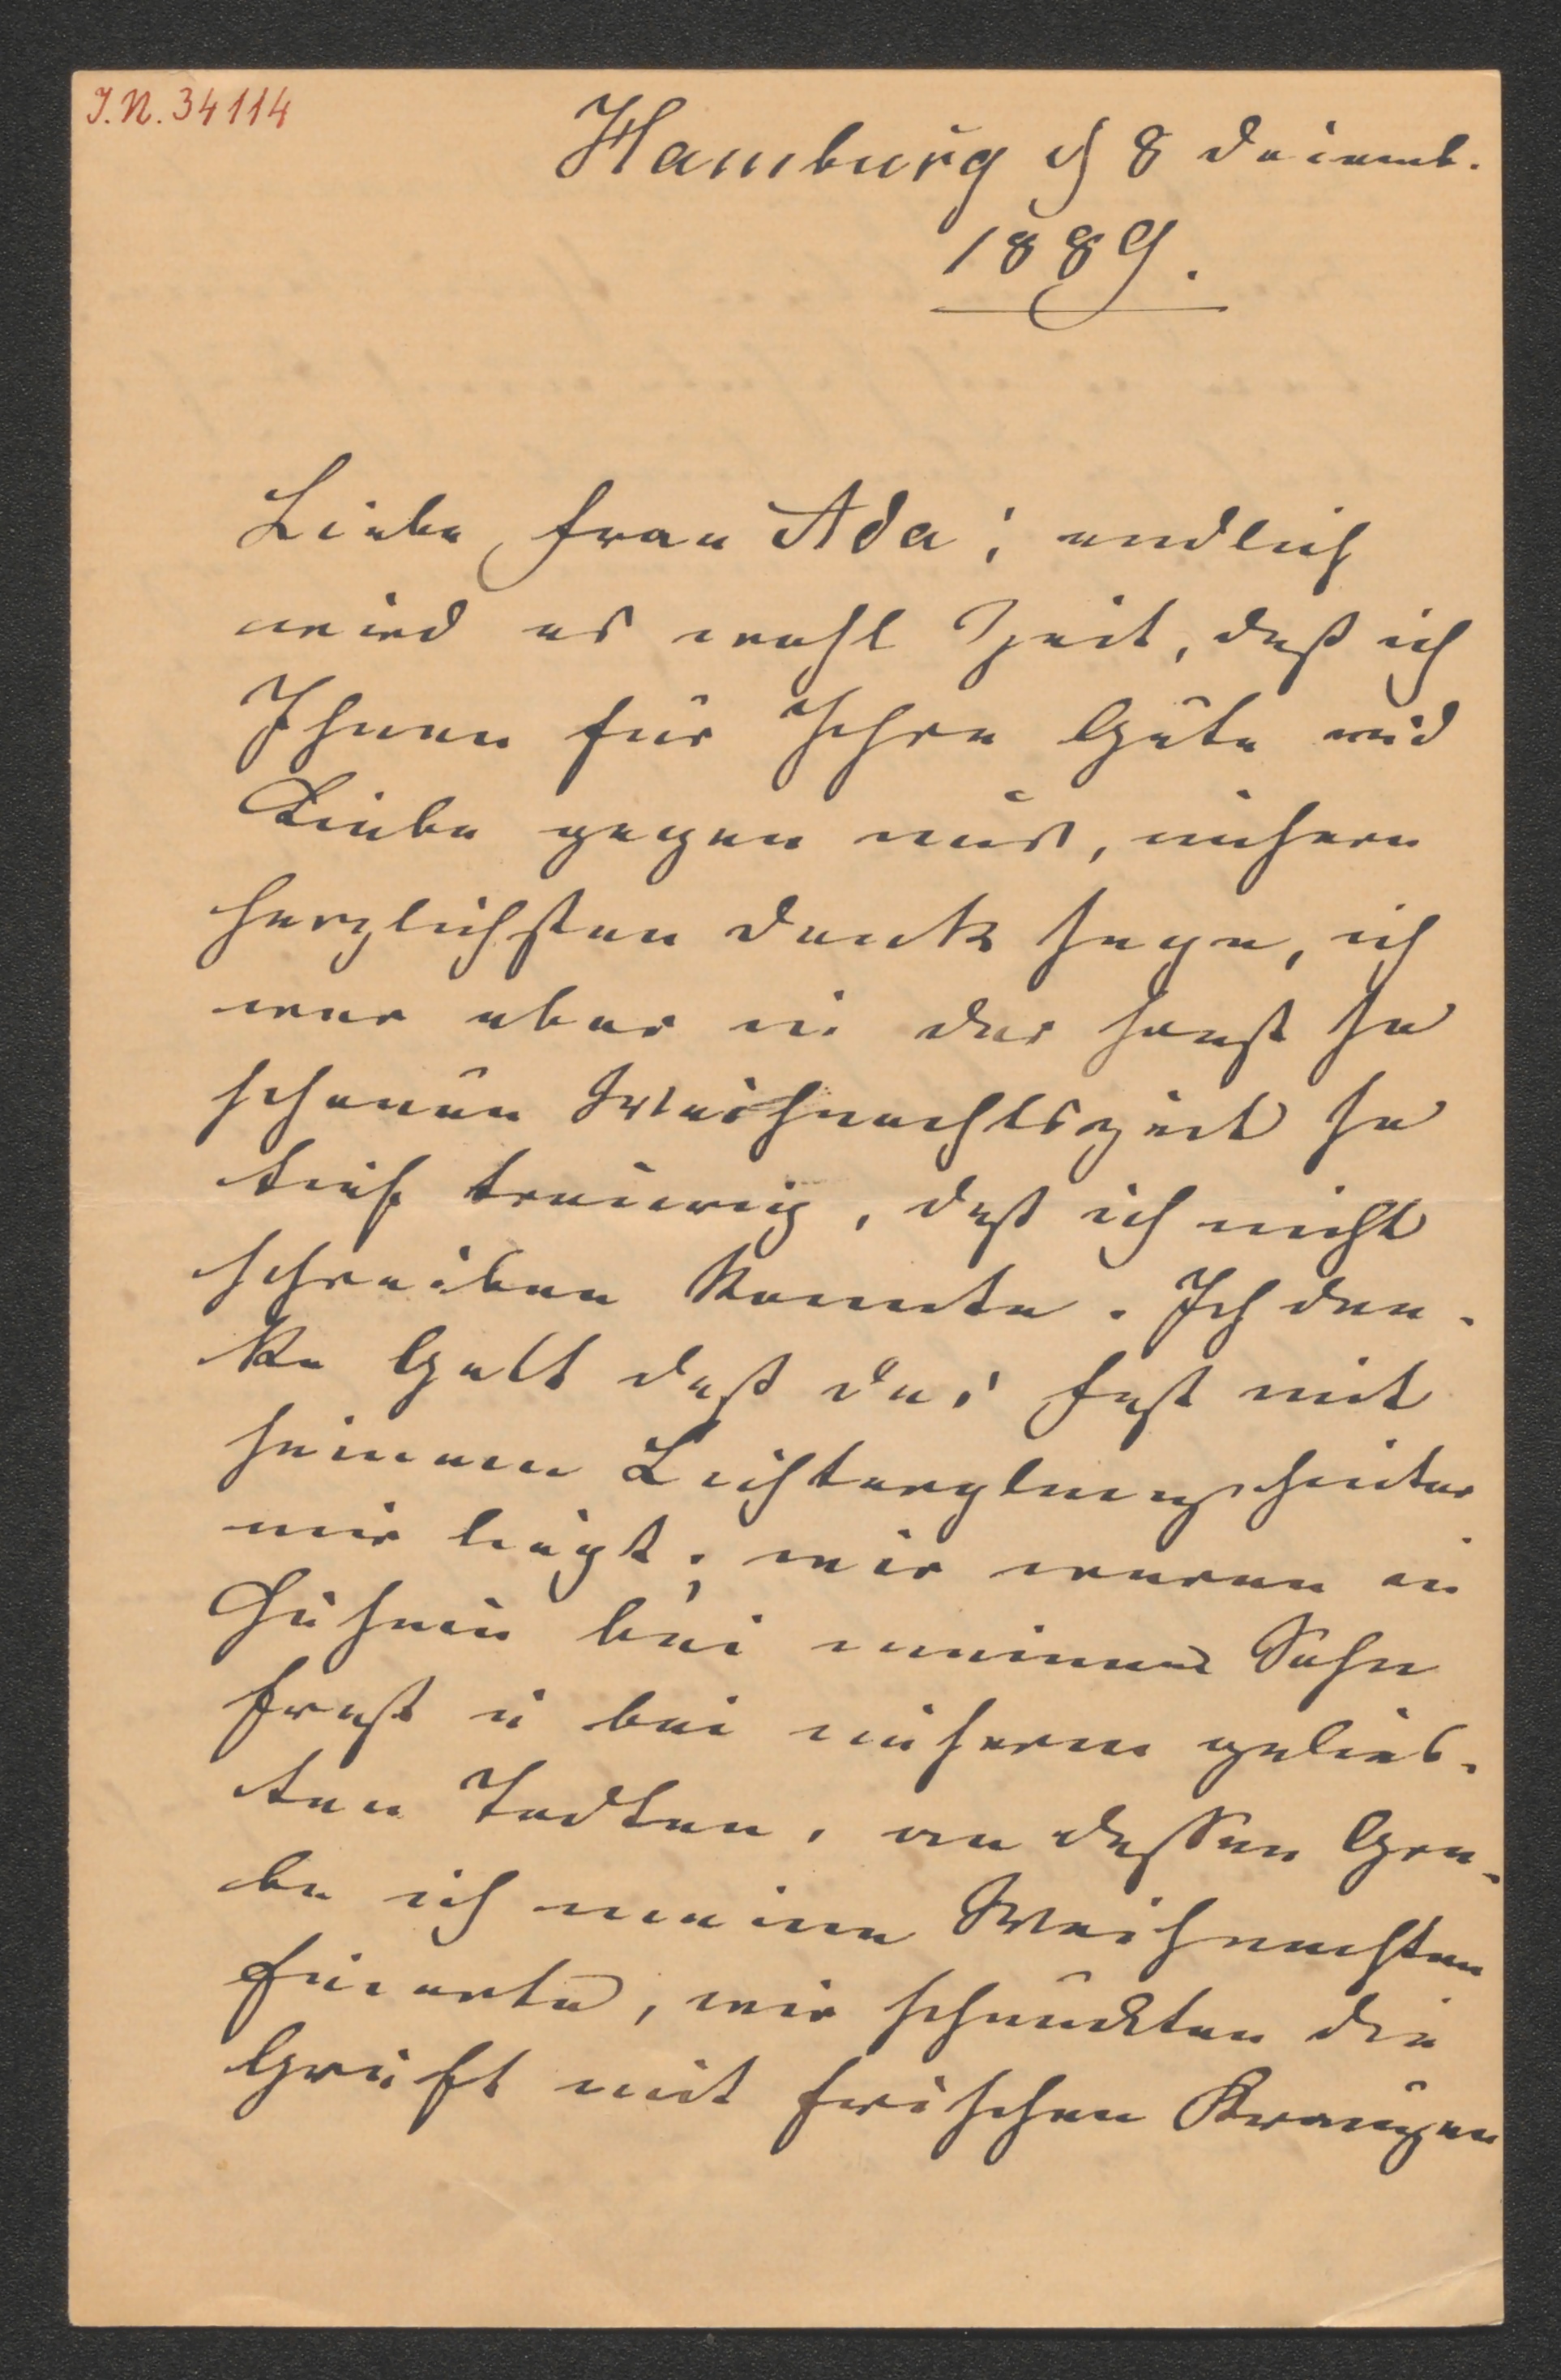 I.N. 34114
Hamburg d 8 Decemb.
1889.
Liebe Frau Ada; endlich
wird es wohl Zeit, daß ich
Ihnen für Ihre Güte und
Liebe gegen uns, unsern
herzlichsten Dank sage, ich
war aber in der sonst so
schönen Weihnachtszeit so
tief traurig, daß ich nicht
schreiben konnte. Ich dan-
ke Gott daß das Fest mit
seinem Lichterglanz hinter
mir liegt; wir waren in
bei meinem Sohn
Ernst u bei unserm gelieb-
ten Todten, an dessen Gra-
be ich meine Weihnachten
feierte, wir schmückten die
Gruft mit frischen Kränzen